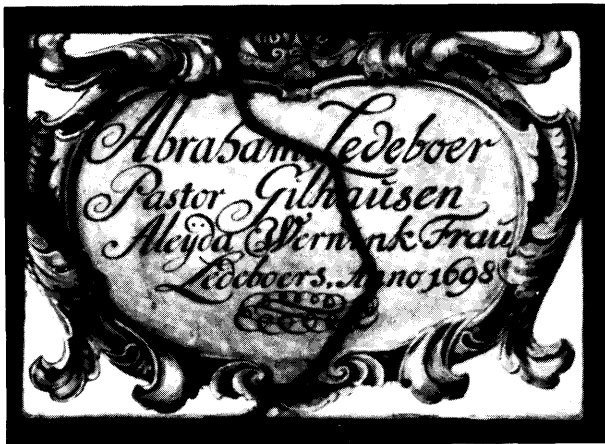 Abraham Ledeboer
Pastor Gilhausen
Aleÿda Wernink Frau
Ledeboers.. Anno 1698